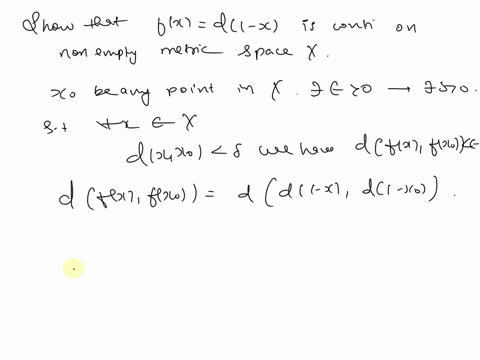 Show that f(x) = d(1-x) is conti on
non empty metric space X.
x0 be any point in X. ∃ ∈ >0 → ∃ δ>0.
s.t ∀x ∈ X
d(x, x0) < δ we have d(f(x), f(x0)) < ∈
d(f(x), f(x0)) = d(d(1-x), d(1-x0)).